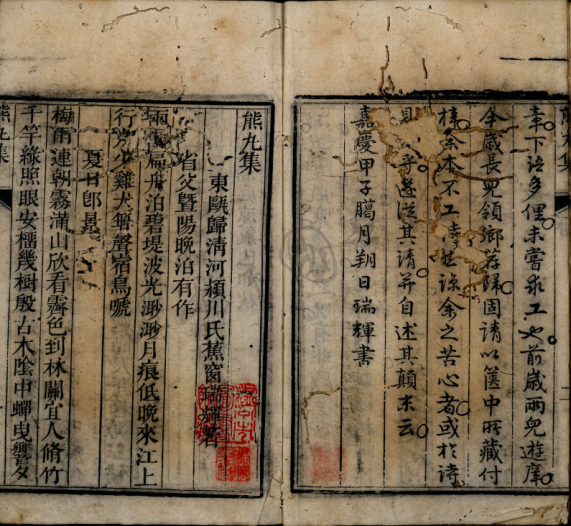 率下語多俚未嘗求工也前歲兩兒遊庠
今歲長兒領鄉荐歸固請以篋中所藏付
梓余本不工詩
余之苦心者或於詩
乎遂從其請并自述其顛末云
嘉慶甲子臘月朔日瑞輝書
熊九集
東甌歸清河潁川氏蕉窗瑞輝著
省父暨陽晚泊有作
扁舟泊碧堤波光渺渺月痕低晚來江上
行
雞犬無聲宿鳥啼
夏日即景
梅雨連朝霧滿山欣看霽色到林關宜人脩竹
千竿綠照眼安榴幾樹殷古木陰中蟬曳響夕
熊九集